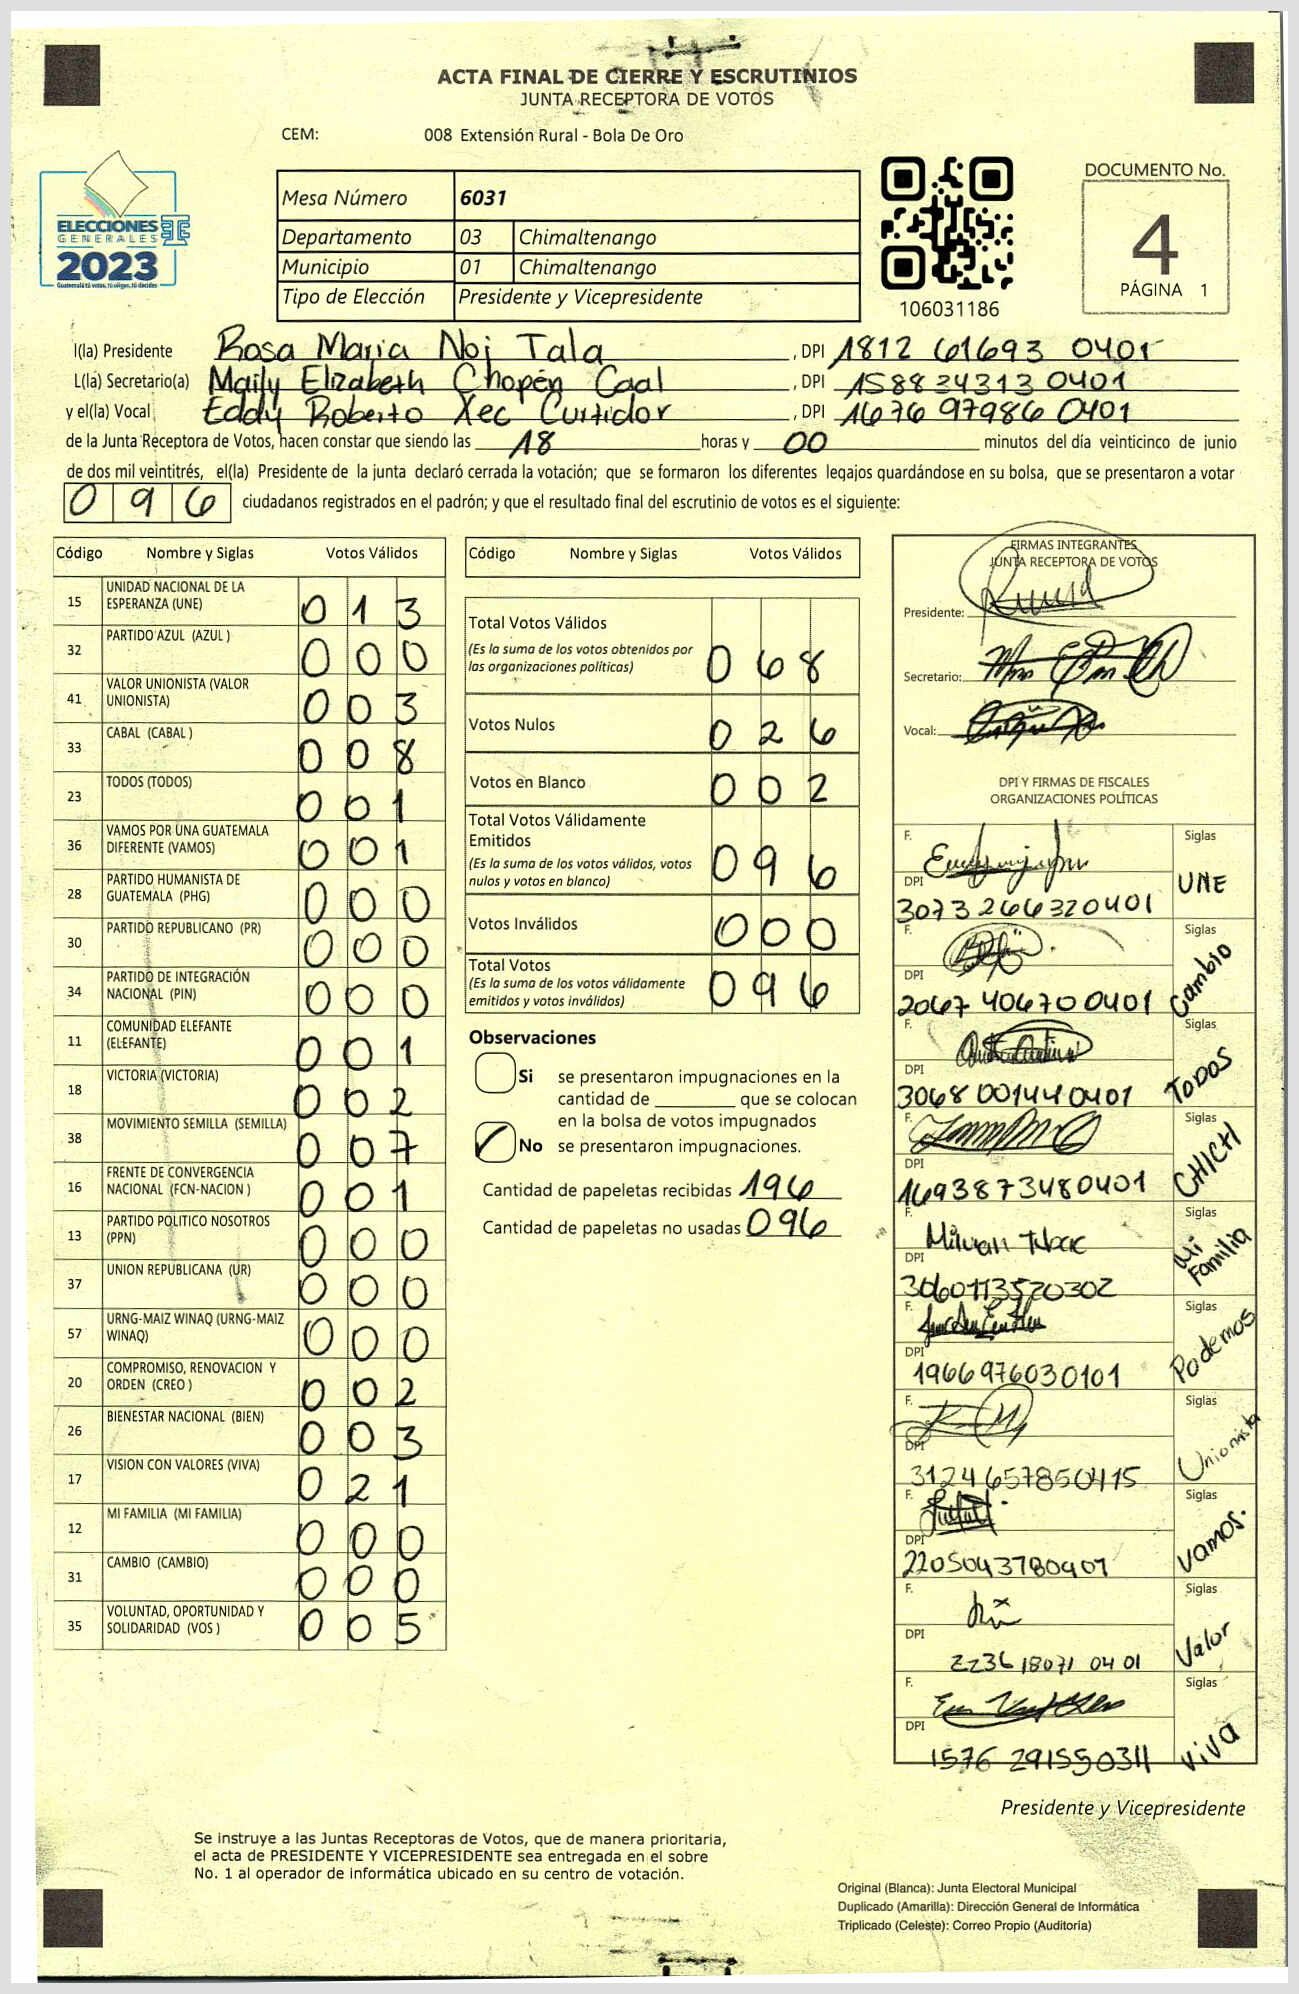 ACTA FINAL DE CIERRE Y ESCRUTINIOS
JUNTA RECEPTORA DE VOTOS
CEM: 008 Extensión Rural - Bola De Oro
ELECCIONES
GENERALES
2023
Guatemala tú votas, tú eliges, tú decides
Mesa Número 6031
Departamento 03 Chimaltenango
Municipio 01 Chimaltenango
Tipo de Elección Presidente y Vicepresidente
106031186
DOCUMENTO No.
4
PÁGINA 1
l(la) Presidente Rosa Maria Noj Tala, DPI 1812 61693 0401
L(la) Secretario(a) Maily Elizabeth Chopén Caal, DPI 1588243130401
y el(la) Vocal Eddy Roberto Xec Curtidor, DPI 1676 97986 0401
de la Junta Receptora de Votos, hacen constar que siendo las 18 horas y 00 minutos del día veinticinco de junio
de dos mil veintitrés, el(la) Presidente de la junta declaró cerrada la votación; que se formaron los diferentes legajos quardándose en su bolsa, que se presentaron a votar
096 ciudadanos registrados en el padrón; y que el resultado final del escrutinio de votos es el siguiente:
Código Nombre y Siglas Votos Válidos
15 UNIDAD NACIONAL DE LA ESPERANZA (UNE) 013
32 PARTIDO AZUL (AZUL ) 000
41 VALOR UNIONISTA (VALOR UNIONISTA) 003
33 CABAL (CABAL ) 008
23 TODOS (TODOS) 001
36 VAMOS POR UNA GUATEMALA DIFERENTE (VAMOS) 001
28 PARTIDO HUMANISTA DE GUATEMALA (PHG) 000
30 PARTIDO REPUBLICANO (PR) 000
34 PARTIDO DE INTEGRACIÓN NACIONAL (PIN) 000
11 COMUNIDAD ELEFANTE (ELEFANTE) 001
18 VICTORIA (VICTORIA) 002
38 MOVIMIENTO SEMILLA (SEMILLA) 007
16 FRENTE DE CONVERGENCIA NACIONAL (FCN-NACION ) 001
13 PARTIDO POLITICO NOSOTROS (PPN) 000
37 UNION REPUBLICANA (UR) 000
57 URNG-MAIZ WINAQ (URNG-MAIZ WINAQ) 000
20 COMPROMISO, RENOVACION Y ORDEN (CREO ) 002
26 BIENESTAR NACIONAL (BIEN) 003
17 VISION CON VALORES (VIVA) 021
12 MI FAMILIA (MI FAMILIA) 000
31 CAMBIO (CAMBIO) 000
35 VOLUNTAD, OPORTUNIDAD Y SOLIDARIDAD (VOS ) 005
Código Nombre y Siglas Votos Válidos
Total Votos Válidos 068
(Es la suma de los votos obtenidos por
las organizaciones políticas)
Votos Nulos 026
Votos en Blanco 002
Total Votos Válidamente
Emitidos 096
(Es la suma de los votos válidos, votos
nulos y votos en blanco)
Votos Inválidos 000
Total Votos 096
(Es la suma de los votos válidamente
emitidos y votos inválidos)
Observaciones
Si se presentaron impugnaciones en la
cantidad de ________ que se colocan
en la bolsa de votos impugnados
No se presentaron impugnaciones.
Cantidad de papeletas recibidas 196
Cantidad de papeletas no usadas 096
FIRMAS INTEGRANTES
JUNTA RECEPTORA DE VOTOS
Presidente:
Secretario:
Vocal:
DPI Y FIRMAS DE FISCALES
ORGANIZACIONES POLÍTICAS
F. Siglas
DPI UNE
3073 266320401
F. Siglas
DPI Cambio
2067 40670 0401
F. Siglas
DPI TODOS
3068 001440401
F. Siglas
DPI CHICH
1693873480401
F. Siglas
DPI Mi Familia
3060113520302
F. Siglas
DPI Podemos
1966976030101
F. Siglas
DPI Unionista
3124657850415
F. Siglas
DPI Vamos.
2205043780401
F. Siglas
DPI Valor
2236 18071 0401
F. Siglas
DPI Viva
1576 291550311
Presidente y Vicepresidente
Se instruye a las Juntas Receptoras de Votos, que de manera prioritaria,
el acta de PRESIDENTE Y VICEPRESIDENTE sea entregada en el sobre
No. 1 al operador de informática ubicado en su centro de votación.
Original (Blanca): Junta Electoral Municipal
Duplicado (Amarilla): Dirección General de Informática
Triplicado (Celeste): Correo Propio (Auditoría)